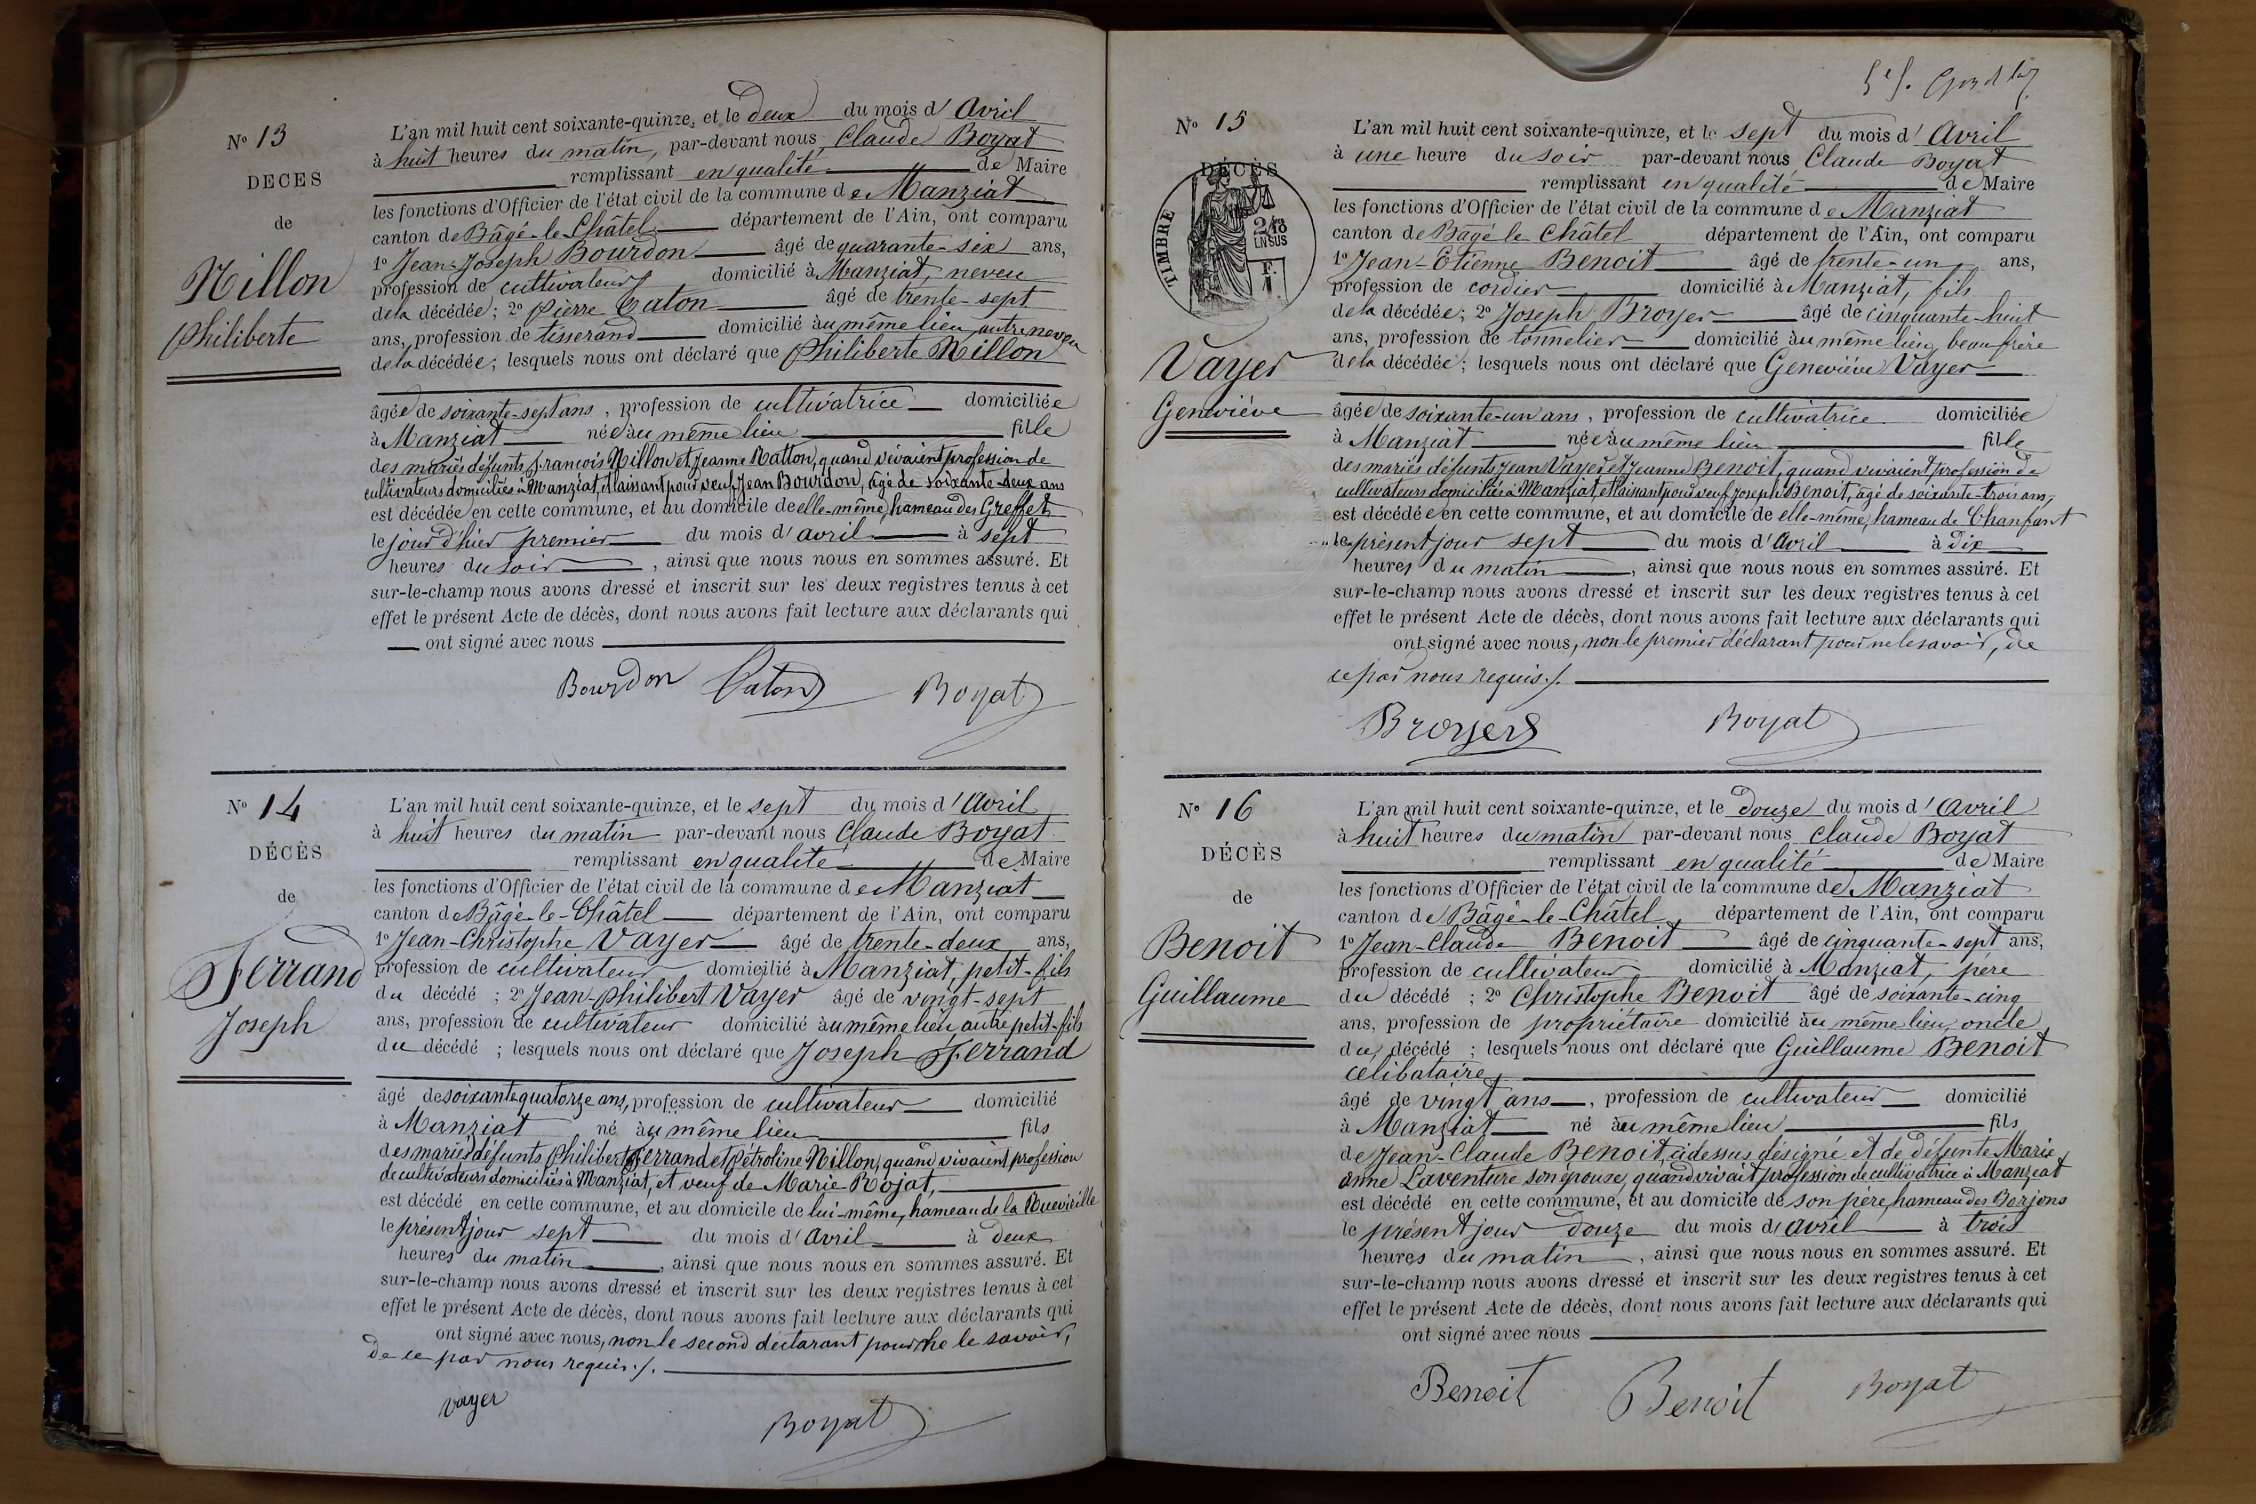 N° 13
DECES
de
Nillon
Philiberte
L'an mil huit cent soixante-quinze, et le deux du mois d'Avril
à huit heures du matin, par-devant nous Claude Boyat
remplissant en qualité de Maire
les fonctions d'Officier de l'état civil de la commune de Manziat
canton de Bâgé-le-Châtel département de l'Ain, ont comparu
1° Jean-Joseph Bourdon âgé de quarante-six ans,
profession de cultivateur domicilié à Manziat, neveu
de la décédée; 2° Pierre Caton âgé de trente-sept
ans, profession de tisserand domicilié au même lieu, autre neveu
de la décédée; lesquels nous ont déclaré que Philiberte Nillon
âgée de soixante-sept ans, profession de cultivatrice domiciliée
à Manziat née au même lieu fille
des mariés défunts françois Nillon et Jeanne Natton, quand vivaient profession de
cultivateurs domiciliés à Manziat, et laisant pour veuf Jean Bourdon, âgé de soixante-deux ans
est décédée en cette commune, et au domicile de elle-même, hameau des Greffets
le jour d'hier premier du mois d'avril à sept
heures du soir, ainsi que nous nous en sommes assuré. Et
sur-le-champ nous avons dressé et inscrit sur les deux registres tenus à cet
effet le présent Acte de décès, dont nous avons fait lecture aux déclarants qui
ont signé avec nous
Bourdon Caton Boyat
N° 14
DÉCÈS
de
Ferrand
Joseph
L'an mil huit cent soixante-quinze, et le sept du mois d'Avril
à huit heures du matin par-devant nous Claude Boyat
remplissant en qualité de Maire
les fonctions d'Officier de l'état civil de la commune de Manziat
canton de Bâgé-le-Châtel département de l'Ain, ont comparu
1° Jean-Christophe Vayer âgé de trente-deux ans,
profession de cultivateur domicilié à Manziat, petit-fils
du décédé ; 2° Jean-Philibert Vayer âgé de vingt-sept
ans, profession de cultivateur domicilié au même lieu, autre petit-fils
du décédé ; lesquels nous ont déclaré que Joseph Ferrand
âgé de soixante quatorze ans, profession de cultivateur domicilié
à Manziat né au même lieu fils
des mariés défunts Philibert Ferrand et Pétroline Nillon, quand vivaient profession
de cultivateurs domiciliés à Manziat, et veuf de Marie Rojat,
est décédé en cette commune, et au domicile de lui-même, hameau de la Ruevieille
le présent jour sept du mois d'Avril à deux
heures du matin, ainsi que nous nous en sommes assuré. Et
sur-le-champ nous avons dressé et inscrit sur les deux registres tenus à cet
effet le présent Acte de décès, dont nous avons fait lecture aux déclarants qui
ont signé avec nous, non le second déclarant pour ne le savoir,
de ce par nous requis ./.
Vayer Boyat
N° 15
DÉCÈS
TIMBRE
2/10
EN SUS
Vayer
Geneviève
L'an mil huit cent soixante-quinze, et le sept du mois d'Avril
à une heure du soir par-devant nous Claude Boyat
remplissant en qualité de Maire
les fonctions d'Officier de l'état civil de la commune de Manziat
canton de Bâgé le Châtel département de l'Ain, ont comparu
1° Jean-Etienne Benoit âgé de trente-un ans,
profession de cordier domicilié à Manziat, fils
de la décédée; 2° Joseph Broyer âgé de cinquante-huit
ans, profession de tonnelier domicilié au même lieu, beau frère
de la décédée; lesquels nous ont déclaré que Geneviève Vayer
âgée de soixante-un ans, profession de cultivatrice domiciliée
à Manziat née au même lieu fille
des mariés défunts Jean Vayer et Jeanne Benoit, quand vivaient profession de
cultivateurs domiciliés à Manziat, et laisant pour veuf Joseph Benoit, âgé de soixante-trois ans,
est décédée en cette commune, et au domicile de elle-même, hameau de Chanfant
le présent jour sept du mois d'Avril à dix
heures du matin, ainsi que nous nous en sommes assuré. Et
sur-le-champ nous avons dressé et inscrit sur les deux registres tenus à cet
effet le présent Acte de décès, dont nous avons fait lecture aux déclarants qui
ont signé avec nous, non le premier déclarant pour ne le savoir, de
ce par nous requis ./.
Broyer Boyat
N° 16
DÉCÈS
de
Benoit
Guillaume
L'an mil huit cent soixante-quinze, et le douze du mois d'Avril
à huit heures du matin par-devant nous Claude Boyat
remplissant en qualité de Maire
les fonctions d'Officier de l'état civil de la commune de Manziat
canton de Bâgé-le-Châtel, département de l'Ain, ont comparu
1° Jean-Claude Benoit âgé de cinquante-sept ans,
profession de cultivateur domicilié à Manziat, père
du décédé ; 2° Christophe Benoit âgé de soixante-cinq
ans, profession de propriétaire domicilié au même lieu, oncle
du décédé ; lesquels nous ont déclaré que Guillaume Benoit
célibataire,
âgé de vingt ans, profession de cultivateur domicilié
à Manziat né au même lieu fils
de Jean-Claude Benoit, cidessus désigné et de défunte Marie
anne Laventure son épouse, quand vivait profession de cultivatrice à Manziat
est décédé en cette commune, et au domicile de son père, hameau des Borjons
le présent jour douze du mois d'avril à trois
heures du matin, ainsi que nous nous en sommes assuré. Et
sur-le-champ nous avons dressé et inscrit sur les deux registres tenus à cet
effet le présent Acte de décès, dont nous avons fait lecture aux déclarants qui
ont signé avec nous
Benoit Benoit Boyat